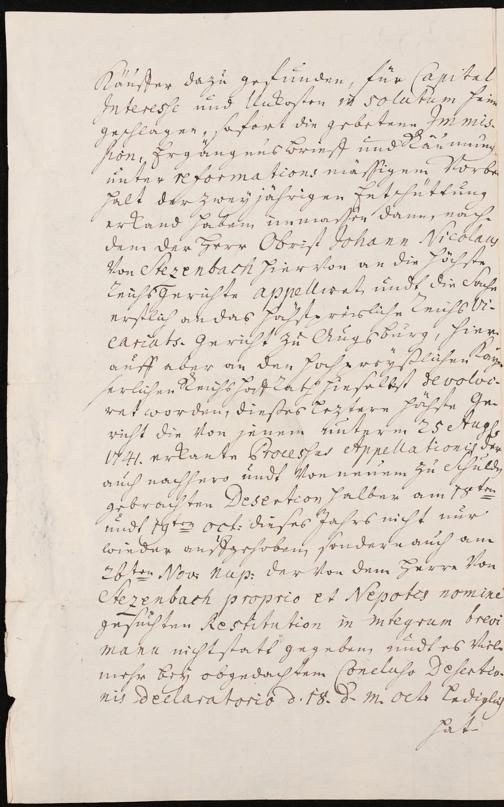 Käuffer dazu gefunden, für Capital
Interesse und Unkosten in solutum hin
geschlagen, sofort die gebetene Immis-
sion, Ergängnusbrieff und Räumung
unter reformations mässigem Vorbe
halt der zweyjährigen Entschüttung
erkand haben, inmassen dann, nach-
dem der Herr Obrist Johann Nicolaus
Von Stezenbach hiervon an die höchste
Reichsgerichte appelliret, undt die Sache
erstlich an das höchstpreisliche Reichs Vi-
cariats-Gericht zu Augsburg, hier-
auff aber an den hochpreyßlichen Kay-
serlichen Reichshoff Rath hieselbst devolvi-
ret worden, dieses leztere höchste Ge-
richt die von jenem unterm 25 Augs
1741. erkante Processus Appellationis, der
auch nachhero undt von neuem zu schulden
gebrachten Desertion halber am 18ten
undt 19ten Oct: dieses Jahrs nicht nur
wieder auffgehoben, sondern auch am
26ten Nov: nup: der von dem Herrn Von
Stezenbach proprio et Nepotis nomine
gesuchten Restitution in integrum brevi
manu nicht statt gegeben, undt es viel-
mehr bey obgedachtem Concluso Desertio-
nis declaratorio d. 18. d. m. Oct: lediglich
hat